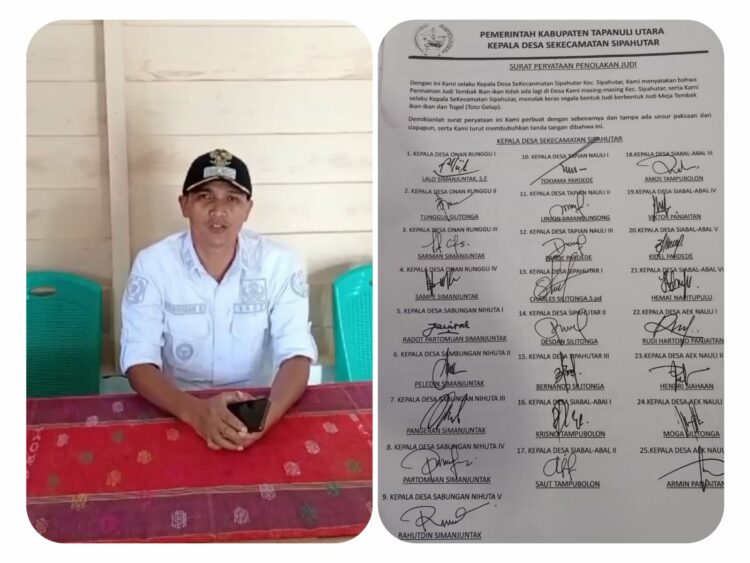 PEMERINTAH KABUPATEN TAPANULI UTARA
KEPALA DESA SEKECAMATAN SIPAHUTAR
SURAT PERYATAAN PENOLAKAN JUDI
Dengan ini Kami selaku Kepala Desa SeKecanmatan Sipahutar Kec. Sipahutar, Kami menyatakan bahwa
Permainan Judi Tembak Ikan-ikan tidak ada lagi di Desa Kami masing-masing Kec. Sipahutar, serta Kami
selaku Kepala SeKecamatan Sipahutar, menolak keras segala bentuk Judi berbentuk Judi Meja Tembak
ikan-ikan dan Togel (Toto Gelap).
Demiklanlah surat peryataan ini Kami perbuat dengan sebenarnya dan tampa ada unsur paksaan dari
siapapun, serta Kami turut membubuhkan tanda tangan dibawha ini.
KEPALA DESA SEKECAMATAN SIPAHUTAR
1. KEPALA DESA ONAN RUNGGU I
LALO SIMANJUNTAK, S.E
2. KEPALA DESA ONAN RUNGGU II
TUNGGUL SILITONGA
3. KEPALA DESA ONAN RUNGGU III
SARMAN SIMANJUNTAK
4. KEPALA DESA ONAN RUNGGU IV
SAMPE SIMANJUNTAK
5. KEPALA DESA SABUNGAN NIHUTA I
RADOT PARTOMUAN SIMANJUNTAK
6. KEPALA DESA SAMBUNGAN NIHUTA II
PELEDIN SIMANJUNTAK
7. KEPALA DESA SABUNGAN NIHUTA III
PANGERAN SIMANJUNTAK
8. KEPALA DESA SABUNGAN NIHUTA IV
PARTOMUAN SIMANJUNTAK
9. KEPALA DESA SABUNGAN NIHUTA V
RAHUTDIN SIMANJUNTAK
10. KEPALA DESA TAPIAN NAULI I
TOKIAMA PARDEDE
11. KEPALA DESA TAPIAN NAULI II
LINKON SIMANGUNSONG
12. KEPALA DESA TAPIAN NAULI III
PARDEDE
13. KEPALA DESA SIPAHUTAR I
CHARLES SILITONGA S.pd
14. KEPALA DESA SIPAHUTAR II
DESDAN SILITONGA
15. KEPALA DESA SIPAHUTAR III
BERNANDO SILITONGA
16. KEPALA DESA SIABAL-ABAI I
KRISNO TAMPUBOLON
17. KEPALA DESA SIABAL-ABAL II
SAUT TAMPUBOLON
18.KEPALA DESA SIABAL-ABAL III
AMOS TAMPUBOLON
19. KEPALA DESA SIABAL-ABAL IV
VIKTOR PANJAITAN
20. KEPALA DESA SIABAL-ABAL V
KIDEL PARDEDE
21. KEPALA DESA SIABAL-ABAL VI
HEMAT NAPITUPULU
22.KEPALA DESA AEK NAULI I
RUDI HARTONO PANJAITAN
23.KEPALA DESA AEK NAULI II
HENDRI SIAHAAN
24.KEPALA DESA AEK NAULI
MOGA SILITONGA
25.KEPALA DESA AEK NAULI
ARMIN PANJAITAN